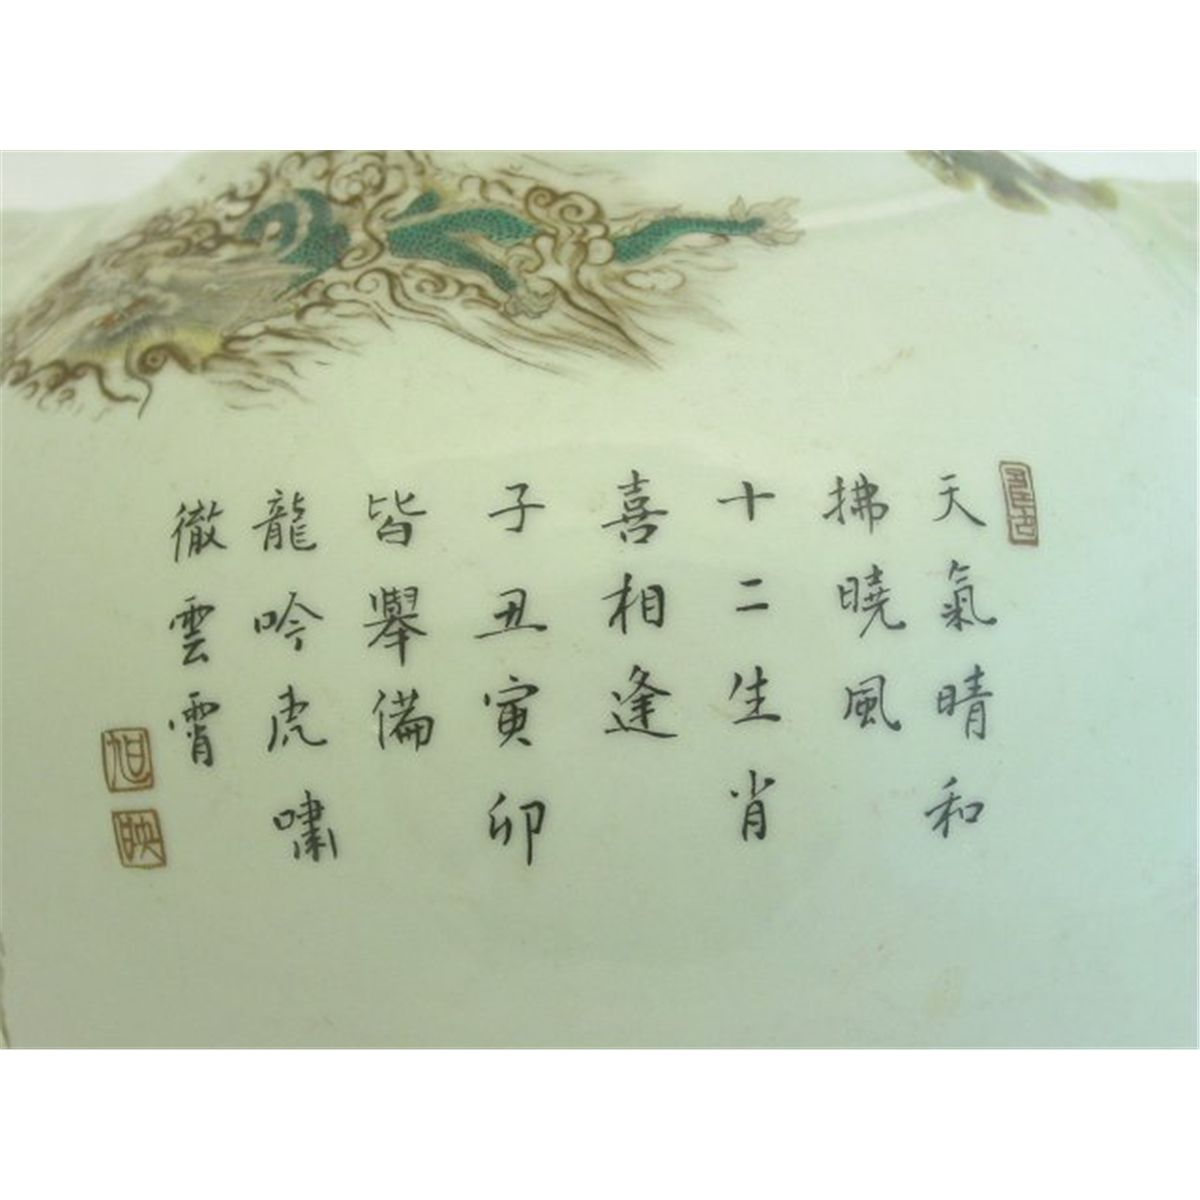 天氣晴和
拂曉風
十二生肖
喜相逢
子丑寅卯
皆舉備
龍吟虎嘯
徹雲霄
旭
映